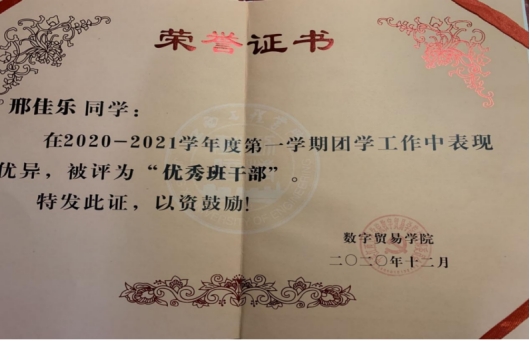 荣誉证书
邢佳乐 同学：
在2020-2021学年度第一学期团学工作中表现
优异，被评为“优秀班干部”。
特发此证，以资鼓励！
数字贸易学院
二〇二〇年十二月